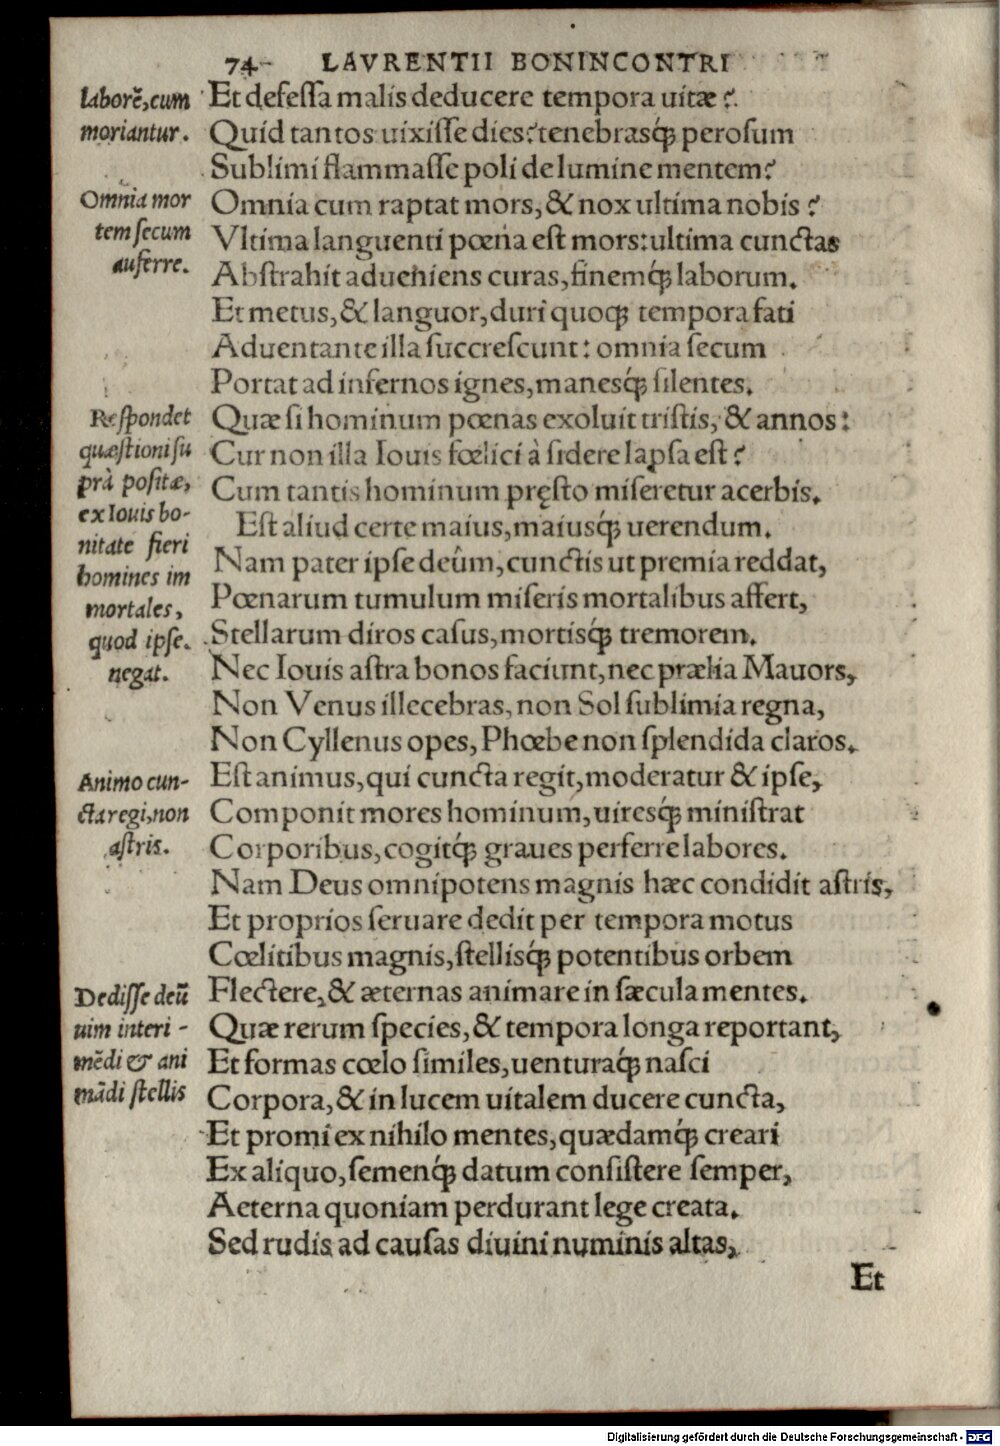 74 LAVRENTII BONINCONTRI
laborē, cum
moriantur.
Et defessa malis deducere tempora uitæ?
Quid tantos uixisse dies? tenebrasq́; perosum
Sublimi flammasse poli de lumine mentem?
Omnia mor
tem secum
auferre.
Omnia cum raptat mors, & nox ultima nobis?
Vltima languenti pœna est mors: ultima cunctas
Abstrahit adueniens curas, finemq́; laborum.
Et metus, & languor, duri quoq; tempora fati
Aduentante illa succrescunt: omnia secum
Portat ad infernos ignes, manesq́; silentes.
Respondet
quæstioni su
prà positæ,
ex Iouis bo-
nitate fieri
homines im
mortales,
quod ipse
negat.
Quæ si hominum pœnas exoluit tristis, & annos:
Cur non illa Iouis fœlici à sidere lapsa est?
Cum tantis hominum pręsto miseretur acerbis.
Est aliud certe maius, maiusq́; uerendum.
Nam pater ipse deûm, cunctis ut premia reddat,
Pœnarum tumulum miseris mortalibus affert,
Stellarum diros casus, mortisq́; tremorem.
Nec Iouis astra bonos faciunt, nec prælia Mauors,
Non Venus illecebras, non Sol sublimia regna,
Non Cyllenus opes, Phœbe non splendida claros.
Animo cun-
cta regi, non
astris.
Est animus, qui cuncta regit, moderatur & ipse,
Componit mores hominum, uiresq́; ministrat
Corporibus, cogitq́; graues perferre labores.
Nam Deus omnipotens magnis hæc condidit astris,
Et proprios seruare dedit per tempora motus
Cœlitibus magnis, stellisq́; potentibus orbem
Dedisse deū
uim interi-
mēdi & ani
mādi stellis
Flectere, & æternas animare in sæcula mentes.
Quæ rerum species, & tempora longa reportant,
Et formas cœlo similes, uenturaq́; nasci
Corpora, & in lucem uitalem ducere cuncta,
Et promi ex nihilo mentes, quædamq́; creari
Ex aliquo, semenq́; datum consistere semper,
Aeterna quoniam perdurant lege creata.
Sed rudis ad causas diuini numinis altas,
Et
Digitalisierung gefördert durch die Deutsche Forschungsgemeinschaft - DFG